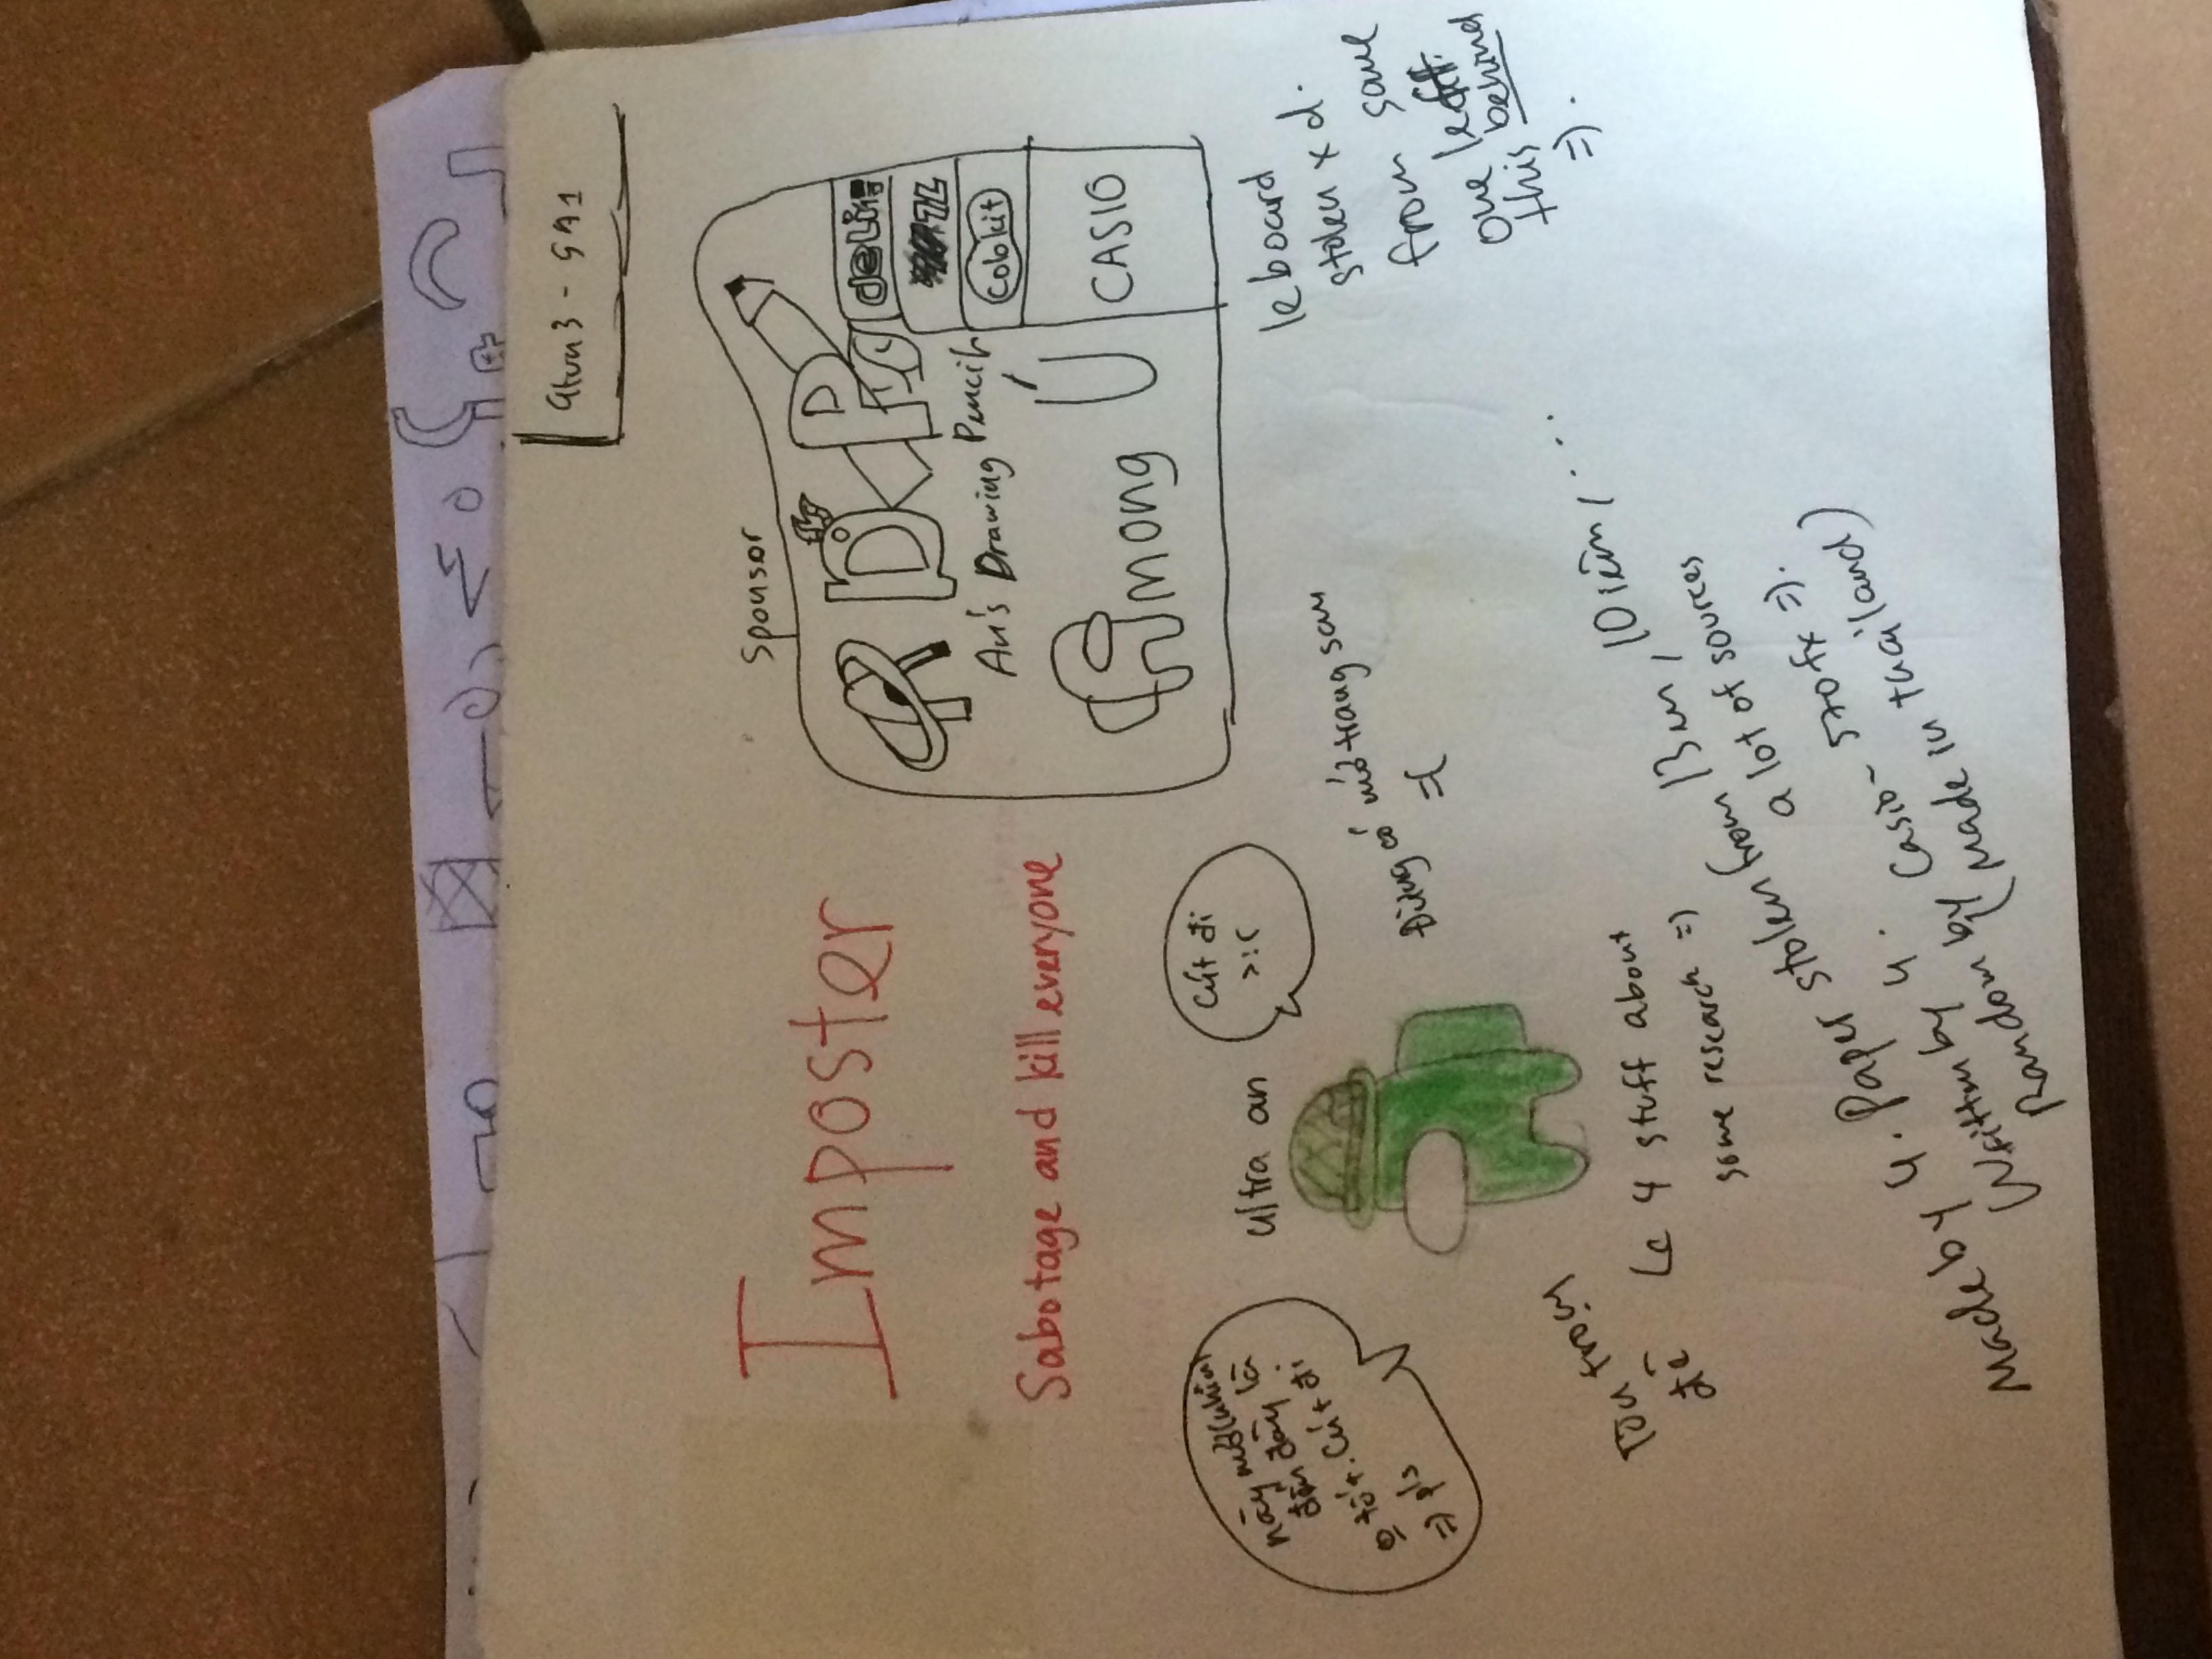 Imposter
Sabotage and kill everyone
Sponsor
ADPs
An's Drawing Pencils
deli
TL
Colokit
CASIO
Among Ú
này mở (nhìn)
đến đây là
tốt. Cút đi
=> pls
Ultra an
Cút đi
>:(
Đừng có mở trang sau
=(
le board
stolen xd.
from some
one left
this behind
=).
Tôn trọng
đê
Le 4 stuff about
some research =)
Made by 4. Paper stolen from Ben, 10 iên, ...
a lot of sources
Written by 4.
Random by Casio - 570fx =).
(Made in thailand)